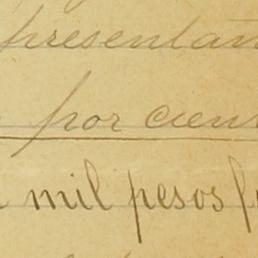 presentan
por cient
mil pesos